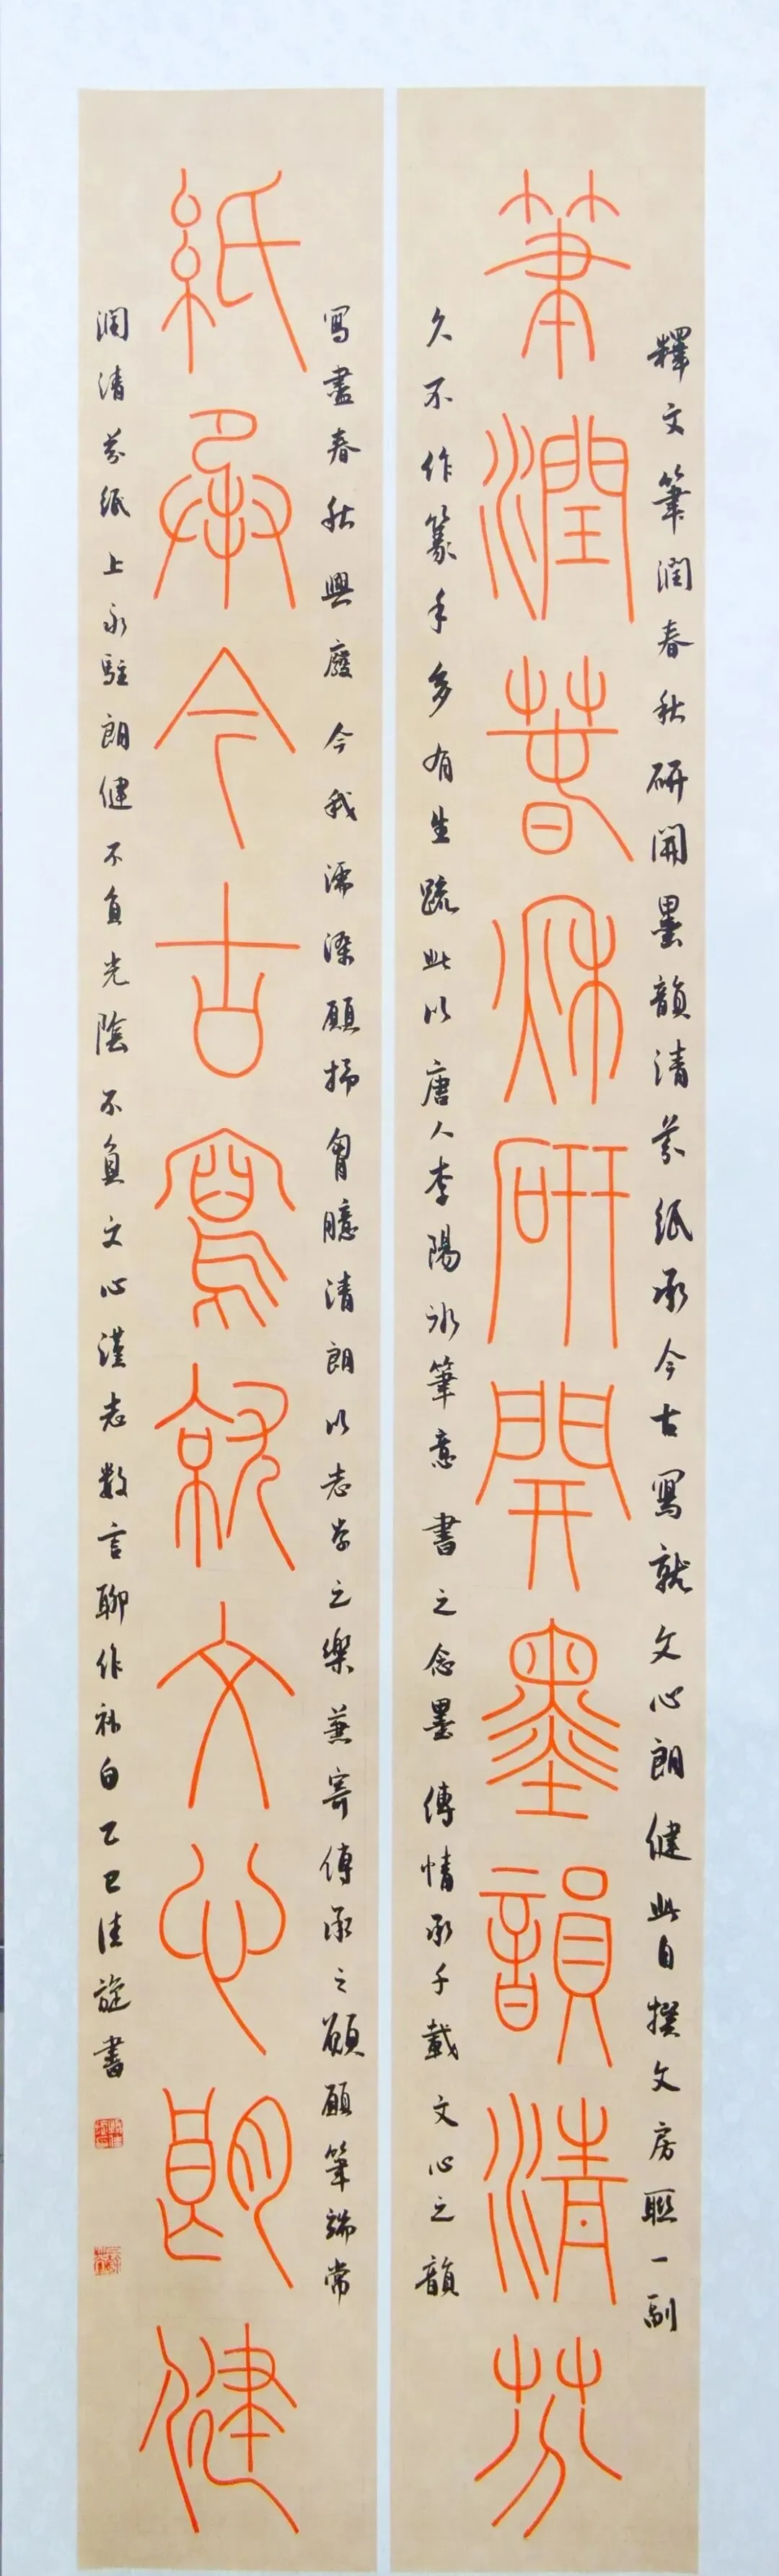 筆潤春秋研開墨韻清芬
釋文筆潤春秋研開墨韻清芬紙承今古寫就文心朗健此自撰文房聯一副
久不作篆手多有生疏此以唐人李陽冰筆意書之念墨傳情承千載文心之韻
紙承今古寫就文心朗健
寫盡春秋興廢今我濡染願揚胷臆清朗以志學之樂兼寄傳承之願願筆端常
潤清芬紙上永駐朗健不負光陰不負文心謹志數言聊作補白乙巳佳旋書